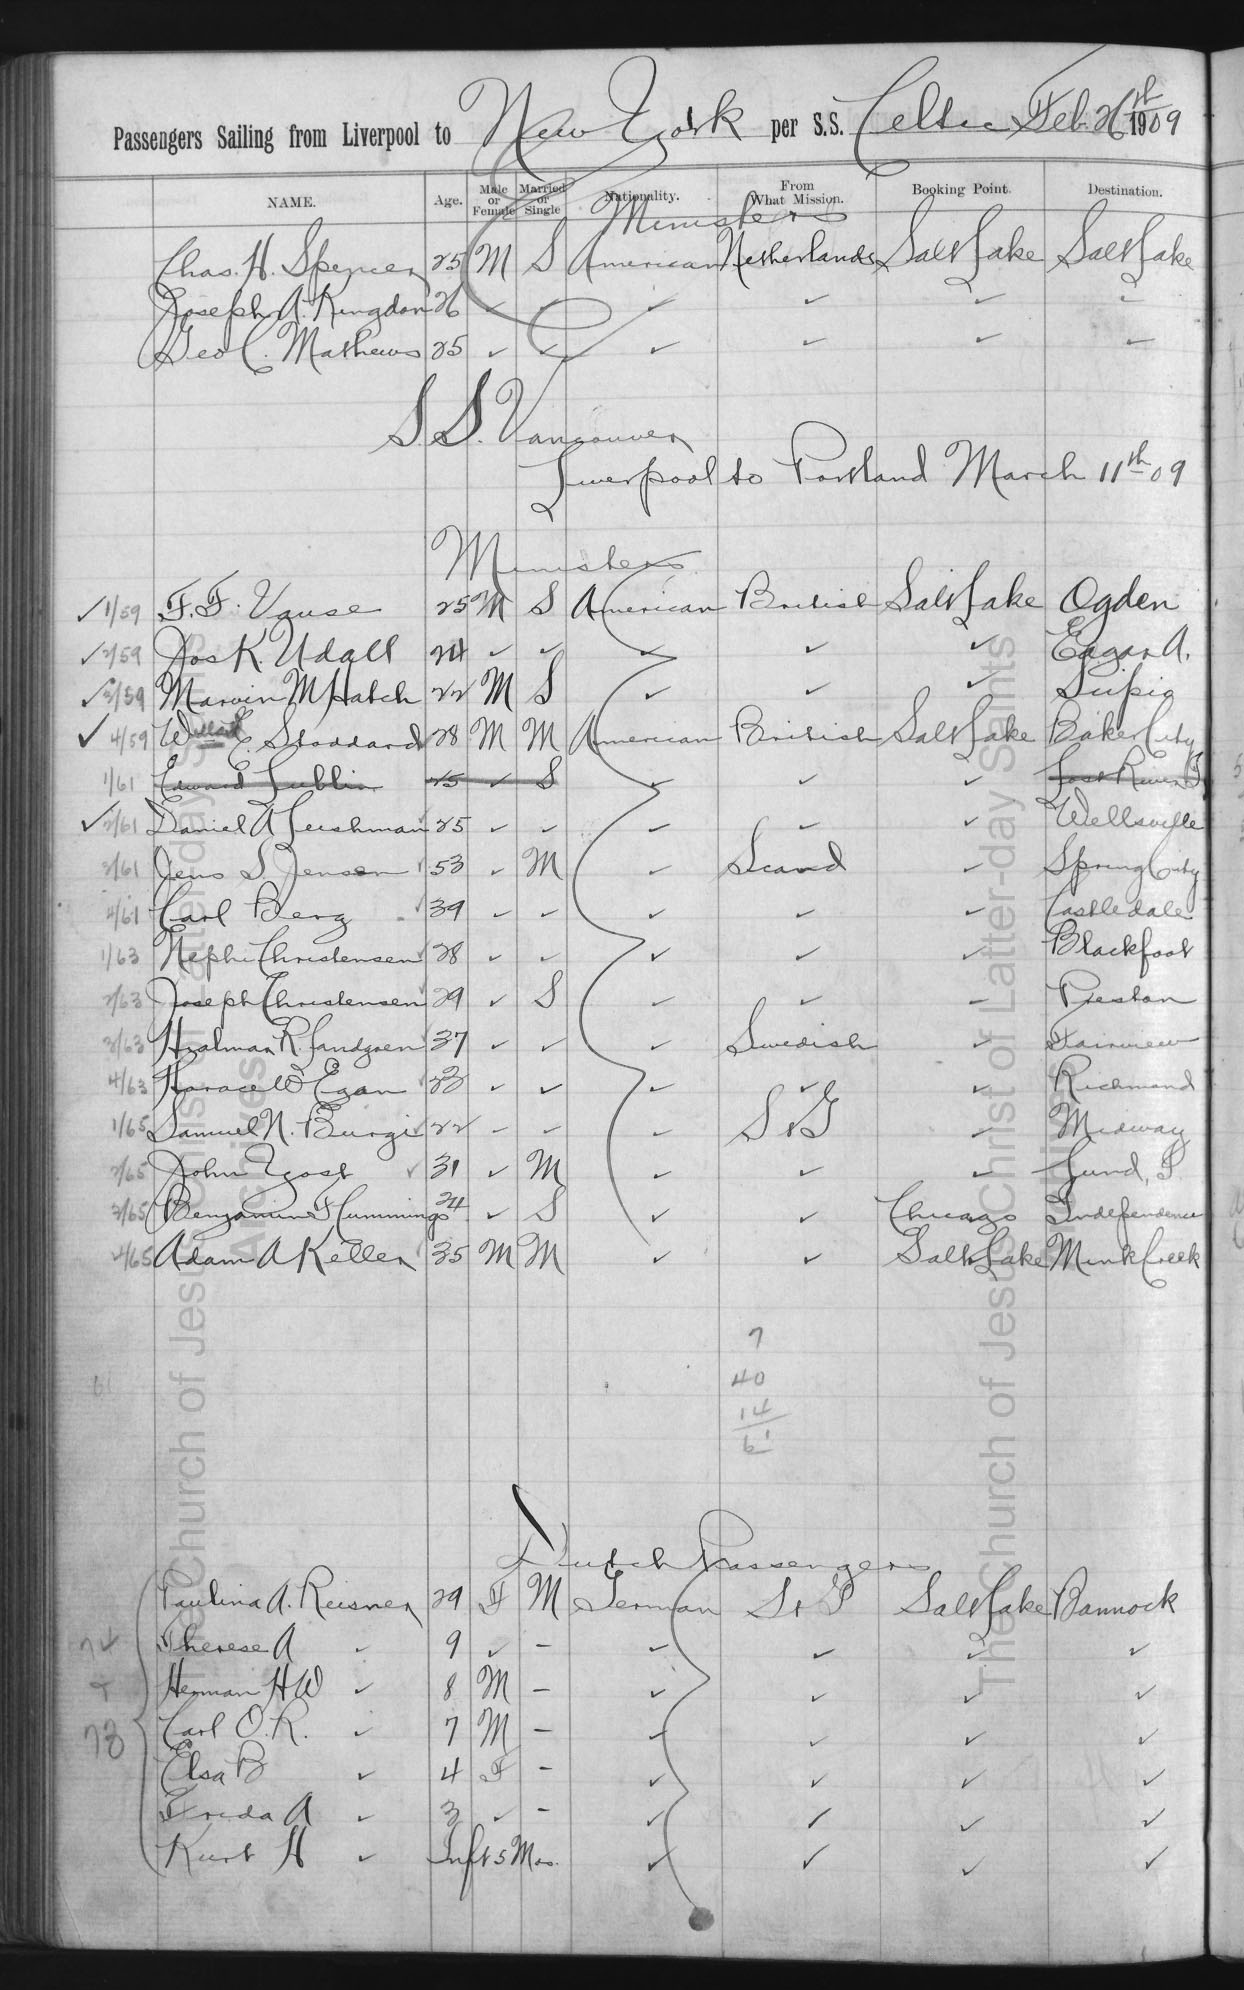 Passengers Sailing from Liverpool to New York per S.S. Celtic Feb. 26th 1909
NAME. Age. Male or Female Married or Single Nationality. From What Mission. Booking Point. Destination.
Ministers
Chas. H. Spencer 25 M S American Netherlands Salt Lake Salt Lake
Joseph A. Kingdon 26 ✓ ✓ ✓ ✓ ✓ ✓
Geo C. Mathews 25 ✓ ✓ ✓ ✓ ✓ ✓
S.S. Vancouver
Liverpool to Portland March 11th 09
Ministers
✓ 1/59 F. F. Vause 25 M S American British Salt Lake Ogden
✓ 2/59 Jos K. Udall 24 ✓ ✓ ✓ ✓ ✓ Eagar A.
✓ 3/59 Marvin M Hatch 22 M S ✓ ✓ ✓
✓ 4/59 Willard E Stoddard 28 M M American British Salt Lake Baker City
1/61 Edward Lublin 25 ✓ S ✓ ✓ ✓ Lost River
✓ 2/61 Daniel A Leishman 25 ✓ ✓ ✓ ✓ ✓ Wellsville
3/61 Jens S. Jensen 53 ✓ M ✓ Scand ✓ Spring City
4/61 Carl Berg 39 ✓ ✓ ✓ ✓ ✓ Castledale
1/63 Nephi Christensen 28 ✓ ✓ ✓ ✓ ✓ Blackfoot
2/63 Joseph Christensen 29 ✓ S ✓ ✓ - Preston
3/63 Hjalmar R. Landgren 37 ✓ ✓ ✓ Swedish ✓ Fairview
4/63 Horace W Egan 23 ✓ ✓ ✓ ✓ ✓ Richmond
1/65 Samuel N. Burgi 22 - - ✓ S & G ✓ Midway
2/65 John Yost 31 ✓ M ✓ ✓ ✓ Lund, I.
3/65 Benjamin F Cummings 24 ✓ S ✓ ✓ Chicago Independence
4/65 Adam A Keller 35 M M ✓ ✓ Salt Lake Mink Creek
7
40
61
14
61
Dutch Passengers
Paulina A. Reisner 29 F M German S & G Salt Lake Bannock
Therese A ✓ 9 ✓ - ✓ ✓ ✓ ✓
Herman H W ✓ 8 M - ✓ ✓ ✓ ✓
78 Carl O. R. ✓ 7 M - ✓ ✓ ✓ ✓
Elsa B ✓ 4 F - ✓ ✓ ✓ ✓
Freda A ✓ 3 ✓ - ✓ ✓ ✓ ✓
Kurt H ✓ Inft 5 Mos. ✓ ✓ ✓ ✓
The Church of Jesus Christ of Latter-day Saints